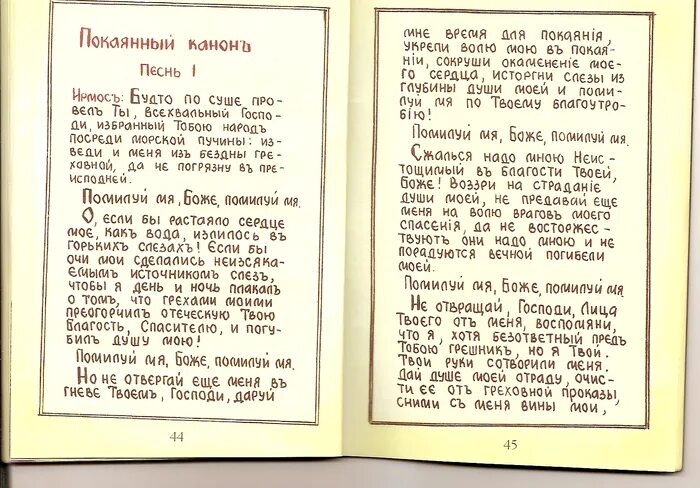 Покаянный канонъ
Песнь I
Ирмосъ: Будто по суше про-
велъ Ты, всехвальный Госпо-
ди, избранный Тобою народъ
посреди морской пучины: из-
веди и меня изъ бездны гре-
ховной, да не погрязну въ пре-
исподней.
Помилуй мя, Боже, помилуй мя.
О, если бы растаяло сердце
мое, какъ вода, излилось въ
горькихъ слезахъ! Если бы
очи мои сделались неизсяка-
емымъ источникомъ слезъ,
чтобы я день и ночь плакалъ
о томъ, что грехами моими
преогорчилъ отеческую Твою
благость, Спасителю, и погу-
билъ душу мою!
Помилуй мя, Боже, помилуй мя.
Но не отвергай еще меня въ
гневе Твоемъ, Господи, даруй
44
мне время для покаянія,
укрепи волю мою въ покая-
ніи, сокруши окамененіе мое-
го сердца, исторгни слезы из
глубины души моей и поми-
луй мя по Твоему благоутро-
бію!
Помилуй мя, Боже, помилуй мя.
Сжалься надо мною Неис-
тощимый въ благости Твоей,
Боже! Воззри на страданіе
души моей, не предавай еще
меня на волю враговъ моего
спасенія, да не восторжес-
твуютъ они надо мною и не
порадуются вечной погибели
моей.
Помилуй мя, Боже, помилуй мя.
Не отвращай, Господи, Лица
Твоего отъ меня, воспомяни,
что я, хотя безответный предъ
Тобою грешникъ, но я Твой.
Твои руки сотворили меня.
Дай душе моей отраду, очис-
ти ее отъ греховной проказы,
сними съ меня вины мои,
45